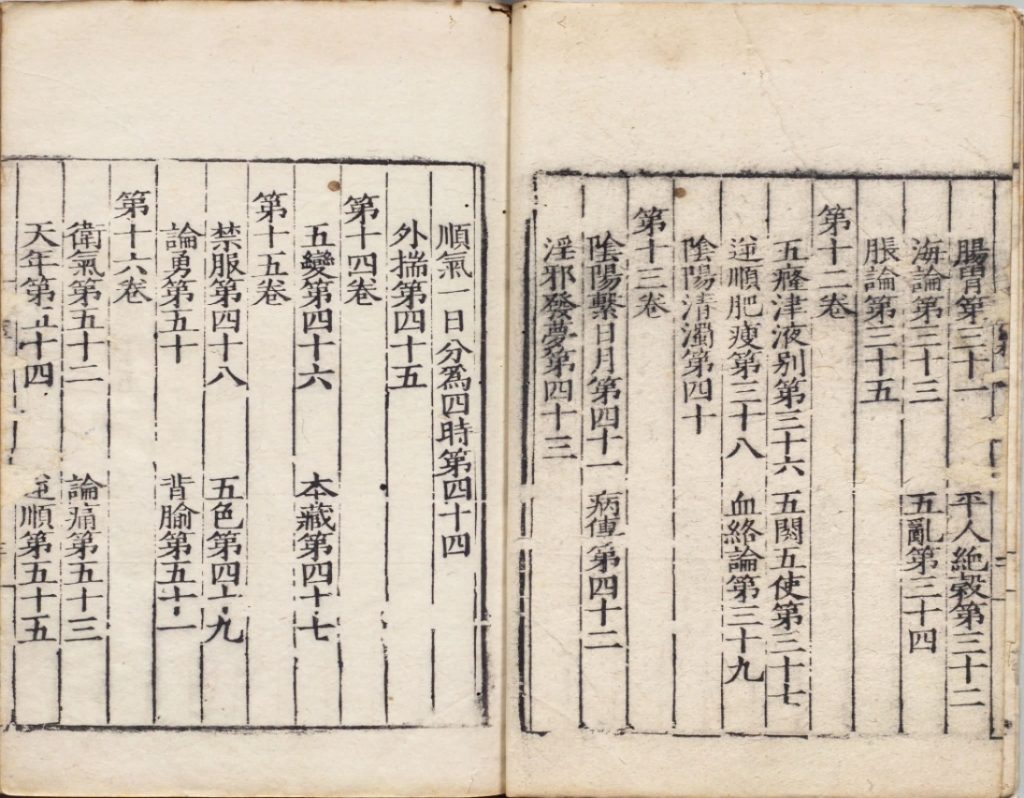 腸胃第三十一 平人絶穀第三十二
海論第三十三 五亂第三十四
脹論第三十五
第十二卷
五癃津液别第三十六 五閱五使第三十七
逆順肥瘦第三十八 血絡論第三十九
陰陽清濁第四十
第十三卷
陰陽繫日月第四十一 病傳第四十二
淫邪發夢第四十三
順氣一日分為四時第四十四
外揣第四十五
第十四卷
五變第四十六 本藏第四十七
第十五卷
禁服第四十八 五色第四十九
論勇第五十 背腧第五十一
第十六卷
衛氣第五十二 論痛第五十三
天年第五十四 逆順第五十五